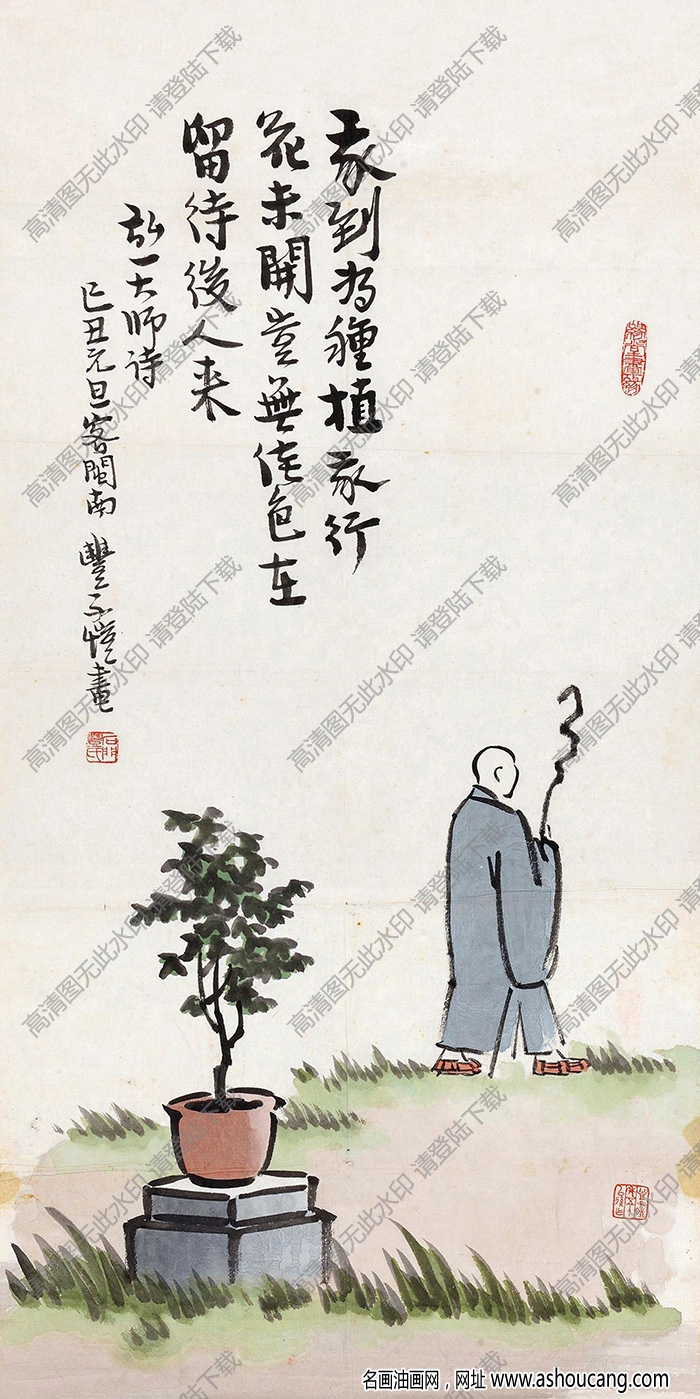 我到为種植我行
花未開豈無佳色在
留待後人来
弘一大師诗
己丑元旦客閩南 豐子愷畫
石門豐氏
高清图无此水印 请登陆下载
名画油画网，网址 www.ashoucang.com